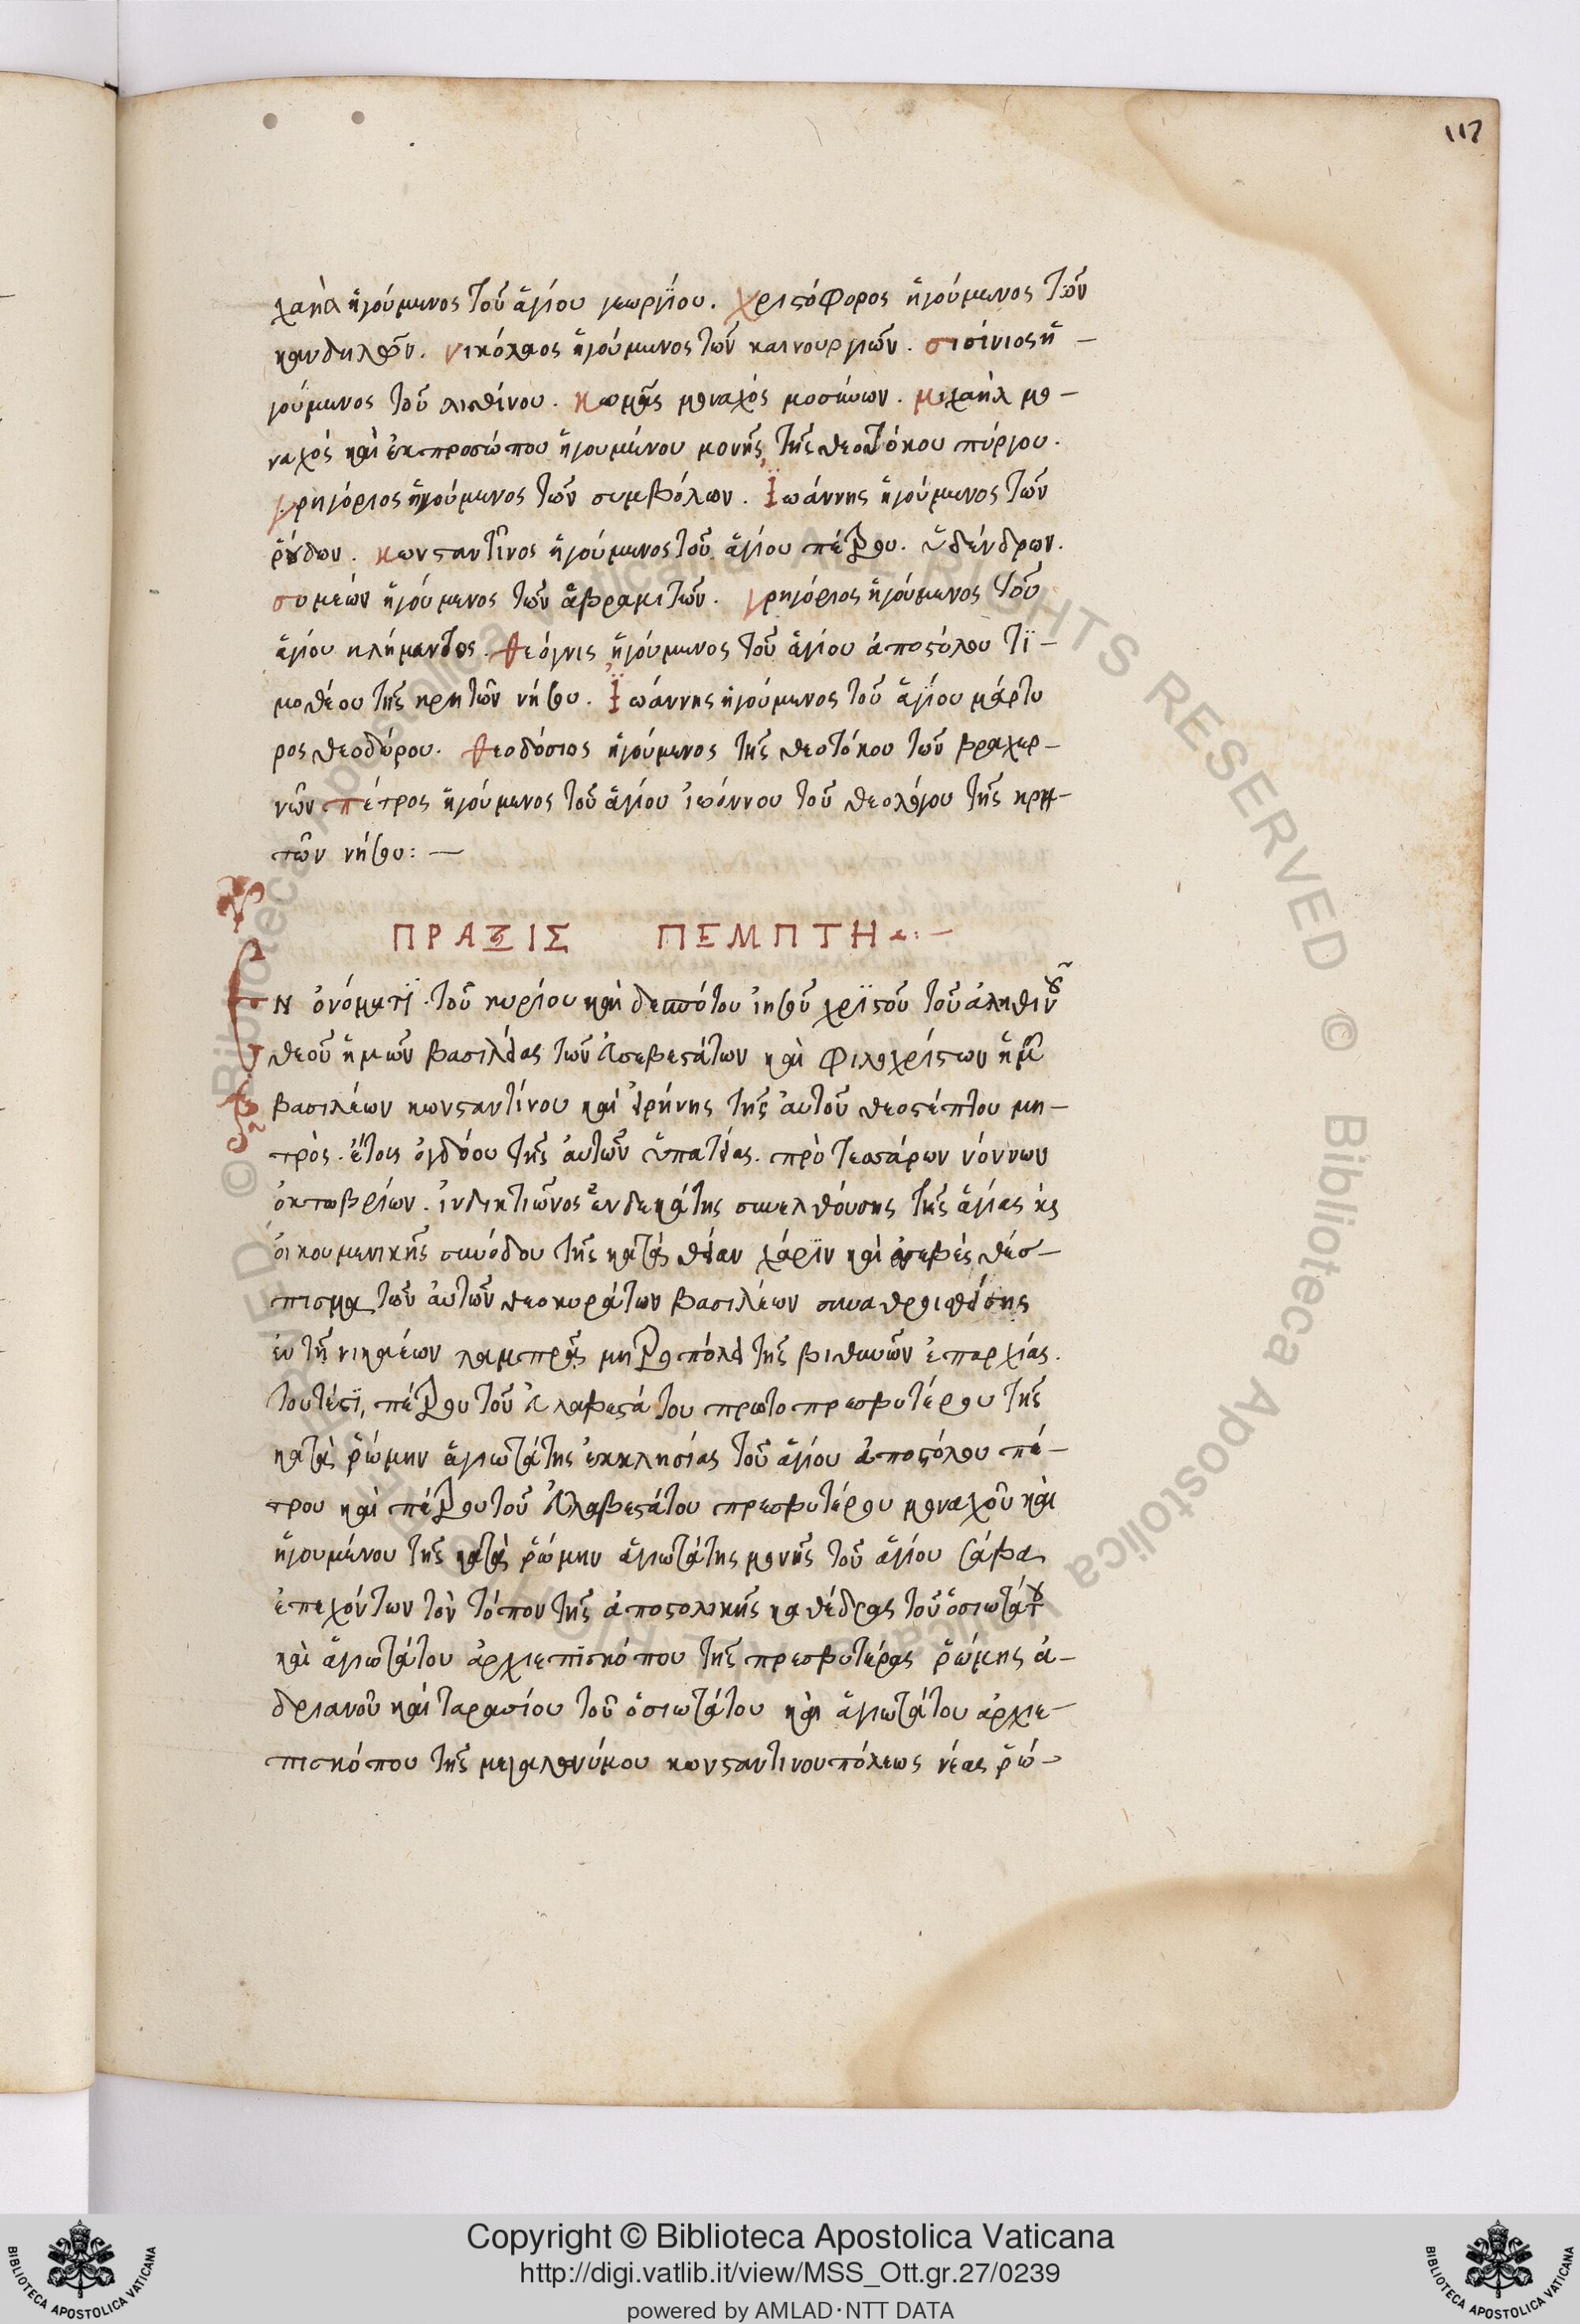 117
χαὴλ ἡγούμενος τοῦ ἁγίου γεωργίου. χριστόφορος ἡγούμενος τῶν
κανδηλῶν. νικόλαος ἡγούμενος τῶν καινουργιῶν. σισίνιος ἡ–
γούμενος τοῦ λιθίνου. κωμᾶς μοναχός μοσκίων. μιχαὴλ μο–
ναχός καὶ ἐκπροσώπου ἡγουμένου μονῆς τῆς θεοτόκου πύργου.
γρηγόριος ἡγούμενος τῶν συμβόλων. Ἰωάννης ἡγούμενος τῶν
ῥύδων. κωνσταντῖνος ἡγούμενος τοῦ ἁγίου πέτρου. ὑδένδρων.
συμεών ἡγούμενος τῶν ἀβραμιτῶν. γρηγόριος ἡγούμενος τοῦ
ἁγίου κλήμαντος. θεόγνις ἡγούμενος τοῦ ἁγίου ἀποστόλου τϊ–
μοθέου τῆς κρητῶν νήσου. Ἰωάννης ἡγούμενος τοῦ ἁγίου μάρτυ
ρος θεοδώρου. θεοδόσιος ἡγούμενος τῆς θεοτόκου τῶν βραχερ–
νῶν πέτρος ἡγούμενος τοῦ ἁγίου ἰωάννου τοῦ θεολόγου τῆς κρη–
τῶν νήσου: —
ΠΡΑΞΙΣ ΠΕΜΠΤΗ
ΕΝ ὀνόματϊ τοῦ κυρίου καὶ δεσπότου ἰησοῦ χρϊστοῦ τοῦ ἀληθινοῦ
θεοῦ ἡμῶν βασιλείας τῶν εὐσεβεστάτων καὶ φιλοχρίστων ἡμῶν
βασιλέων κωνσταντίνου καὶ εἰρήνης τῆς αὐτοῦ θεοστέπτου μη–
τρὸς. ἔτους ὀγδόου τῆς αὐτῶν ὑπατείας. πρὸ τεσσάρων νόννων
ὀκτωβρίων. ἰνδικτιῶνος ἑνδεκάτης συνελθούσης τῆς ἁγίας κς
οἰκουμενικῆς συνόδου τῆς κατὰ θείαν χάρϊν καὶ εὐσεβές θέσ–
πισμα τῶν αὐτῶν θεοκυράτων βασιλέων συναθροισθείσης
ἐν τῇ νικαέων λαμπρᾷ μητροπόλει τῆς βιθυνῶν ἐπαρχίας.
τουτέστϊ, πέτρου τοῦ εὐλαβεστάτου πρωτοπρεσβυτέρου τῆς
κατὰ ῥώμην ἁγιωτάτης ἐκκλησίας τοῦ ἁγίου ἀποστόλου πέ–
τρου καὶ πέτρου τοῦ εὐλαβεστάτου πρεσβυτέρου μοναχοῦ καὶ
ἡγουμένου τῆς κατὰ ῥώμην ἁγιωτάτης μονῆς τοῦ ἁγίου σάβα
ἐπεχόντων τὸν τόπον τῆς ἀποστολικῆς καθέδρας τοῦ ὁσιωτάτου
καὶ ἁγιωτάτου ἀρχιεπισκόπου τῆς πρεσβυτέρας ῥώμης ἀ–
δριανοῦ καὶ ταρασίου τοῦ ὁσιωτάτου καὶ ἁγιωτάτου ἀρχιε–
πισκόπου τῆς μεγαλωνύμου κωνσταντινουπόλεως νέας ῥώ–
Copyright © Biblioteca Apostolica Vaticana
http://digi.vatlib.it/view/MSS_Ott.gr.27/0239
powered by AMLAD·NTT DATA